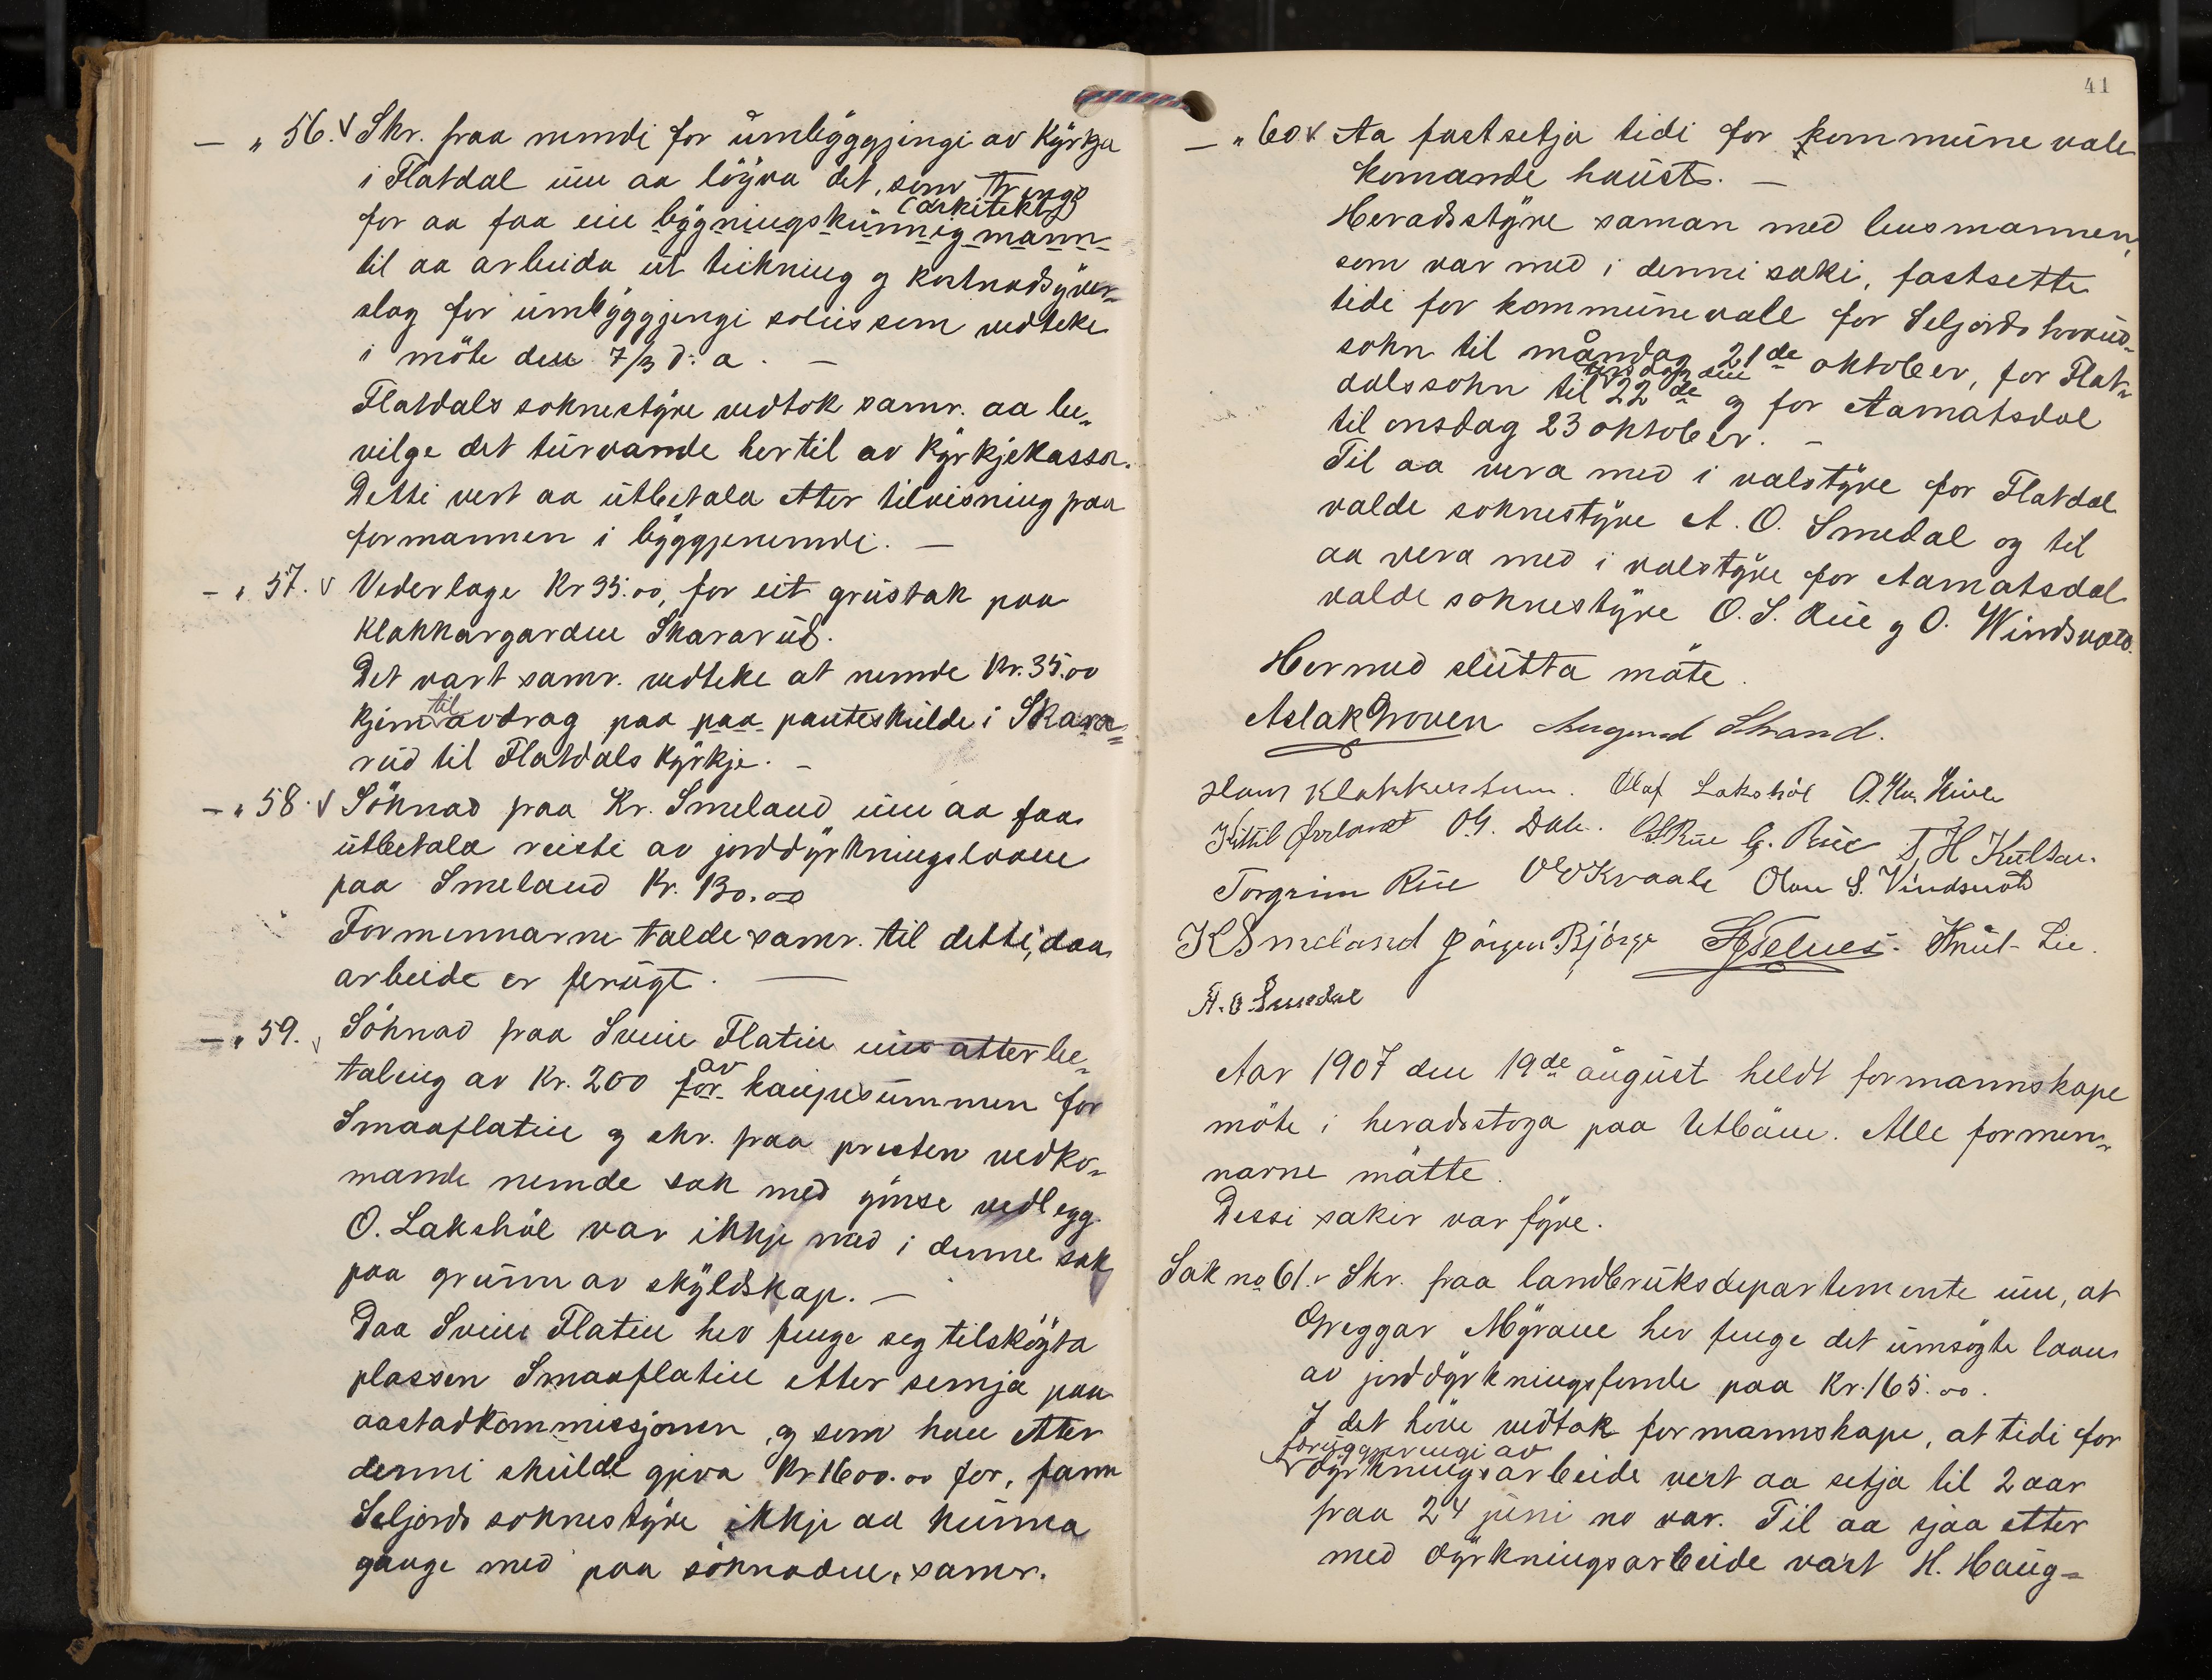 — " 56. v Skr. fraa nemndi for umbyggjingi av Kyrkja
i Flatdal um aa löyva det, som trengs
for aa faa ein bygningskunnig mann (arkitekt)
til aa arbeida ut teikning og kostnadsyver-
slag for umbyggjingi soleis som vedteke
i möte den 7/3 d. a. —
Flatdals soknestyre vedtok samr. aa be-
vilge det turvande hertil av Kyrkjekassa.
Detti vert aa utbetala etter tilvisning fraa
formannen i byggjenemndi. —
— " 57. v Vederlage Kr 35.00, for eit grustak paa
Klokkargarden Skararud.
Det vart samr. vedteke at nemde Kr. 35.00
kjem til avdrag paa paa panteskulde i Skara-
rud til Flatdals Kyrkje. —
— " 58. v Söknad fraa Kr. Smeland um aa faa
utbetala reiste av jorddyrkningslaane
paa Smeland Kr. 130.00
Formennarne talde samr. til detti, daa
arbeide er ferugt. —
— " 59. v Söknad fraa Svein Flatin um atterbe-
taling av Kr. 200 for av kaupesummen for
Smaaflatin og skr. fraa presten vedko-
mande nemde sak med ymse vedlegg.
O. Lakshól var ikkje med i denne sak
paa grunn av skyldskap. —
Daa Svein Flatin hev fenge seg tilsköyta
plassen Smaaflatin etter semja paa
aastadkommissjonen, og som han etter
denni skulde gjeva Kr 1600.00 for, fann
Seljords soknestyre ikkje aa kunna
gange med paa söknaden, samr.
41
— " 60 v Aa fastsetja tidi for kommunevale
komande haust. —
Heradsstyre saman med lensmannen,
som var med i denni saki, fastsette
tidi for kommunevale for Seljords hovud-
sokn til måndag 21de oktober, for Flat-
dalssokn til tirsdag den 22de og for Aamatsdal
til onsdag 23 oktober. —
Til aa vera med i valstyre for Flatdal
valde soknestyre A. O. Smedal og til
aa vera med i valstyre for Aamatsdal
valde soknestyre O. S. Rue og O. Windsvald.
Hermed slutta möte.
Aslak Groven Augund Strand.
Hans Klokkerhum. Olaf Lakshól O. Kn.
Kittil O. G. Dale. O S Rue G. Rue T H Kultan.
Torgrim Rue O O Kvaale Olav S. Vindsvald
K Smeland Jörgen Björge Knut Lie.
A. O. Smedal
Aar 1907 den 19de august heldt formannskape
möte i heradsstoga paa Utbäen. Alle formen-
narne mätte.
Dessi sakir var fyre.
Sak no 61. v Skr. fraa landbruksdepartemente um, at
Greggar Myrane hev fenge det umsögte laan
av jorddyrkningsfonde paa Kr. 165.00.
I det höve vedtok formannskape, at tidi for
fyrebyggjingi av
dyrkningsarbeide vert aa setja til 2 aar
fraa 24 juni no var. Til aa sjaa etter
med dyrkningsarbeide vart H. Haug-